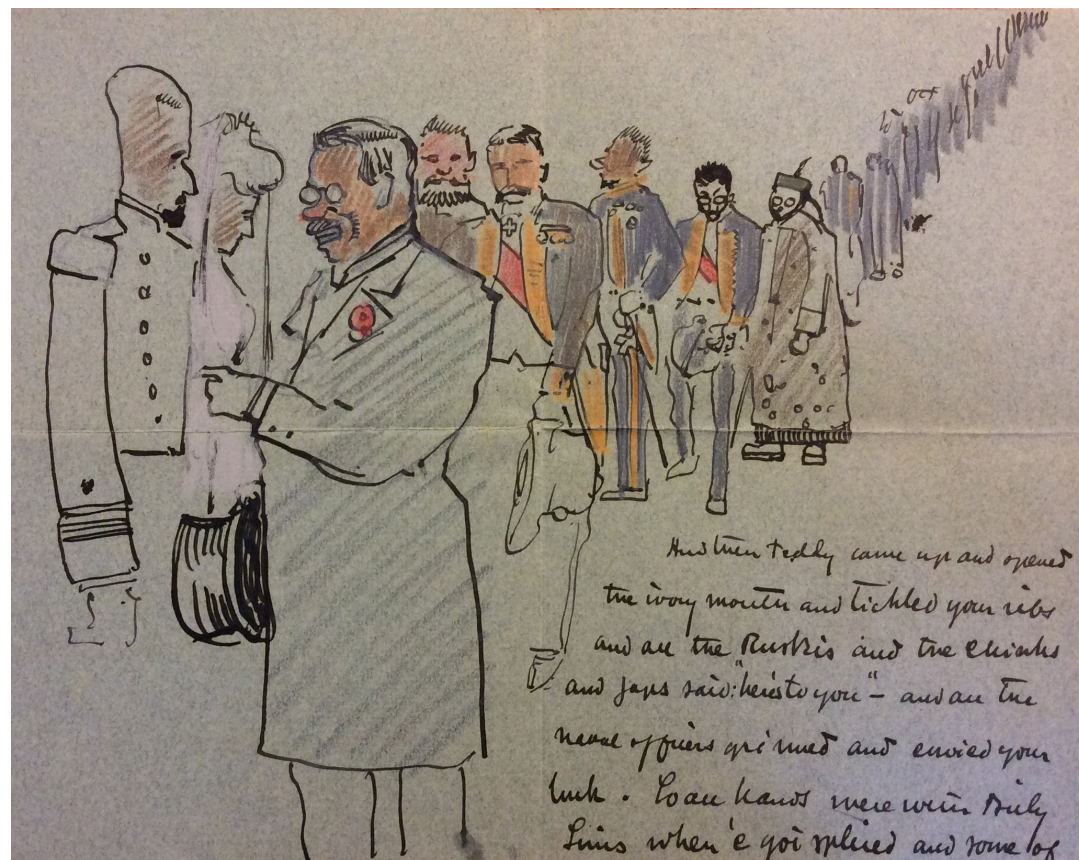 And then Teddy came up and opened
the ivory mouth and tickled your ribs
and all the Ruskis and the Chinks
and Japs said: "here's to you" – and all the
naval officers grinned and envied your
luck. So all hands were with Billy
Sims when 'e got spliced and some of